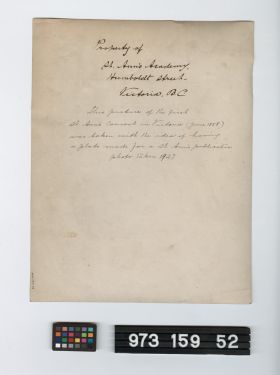 Property of
St. Ann's Academy,
Humboldt Street.
Victoria, B.C
This picture of the first
St Ann's Convent in Victoria (June 1858)
was taken with the idea of having
a plate made for a St Ann's publication
photo taken 1927
973 159 52